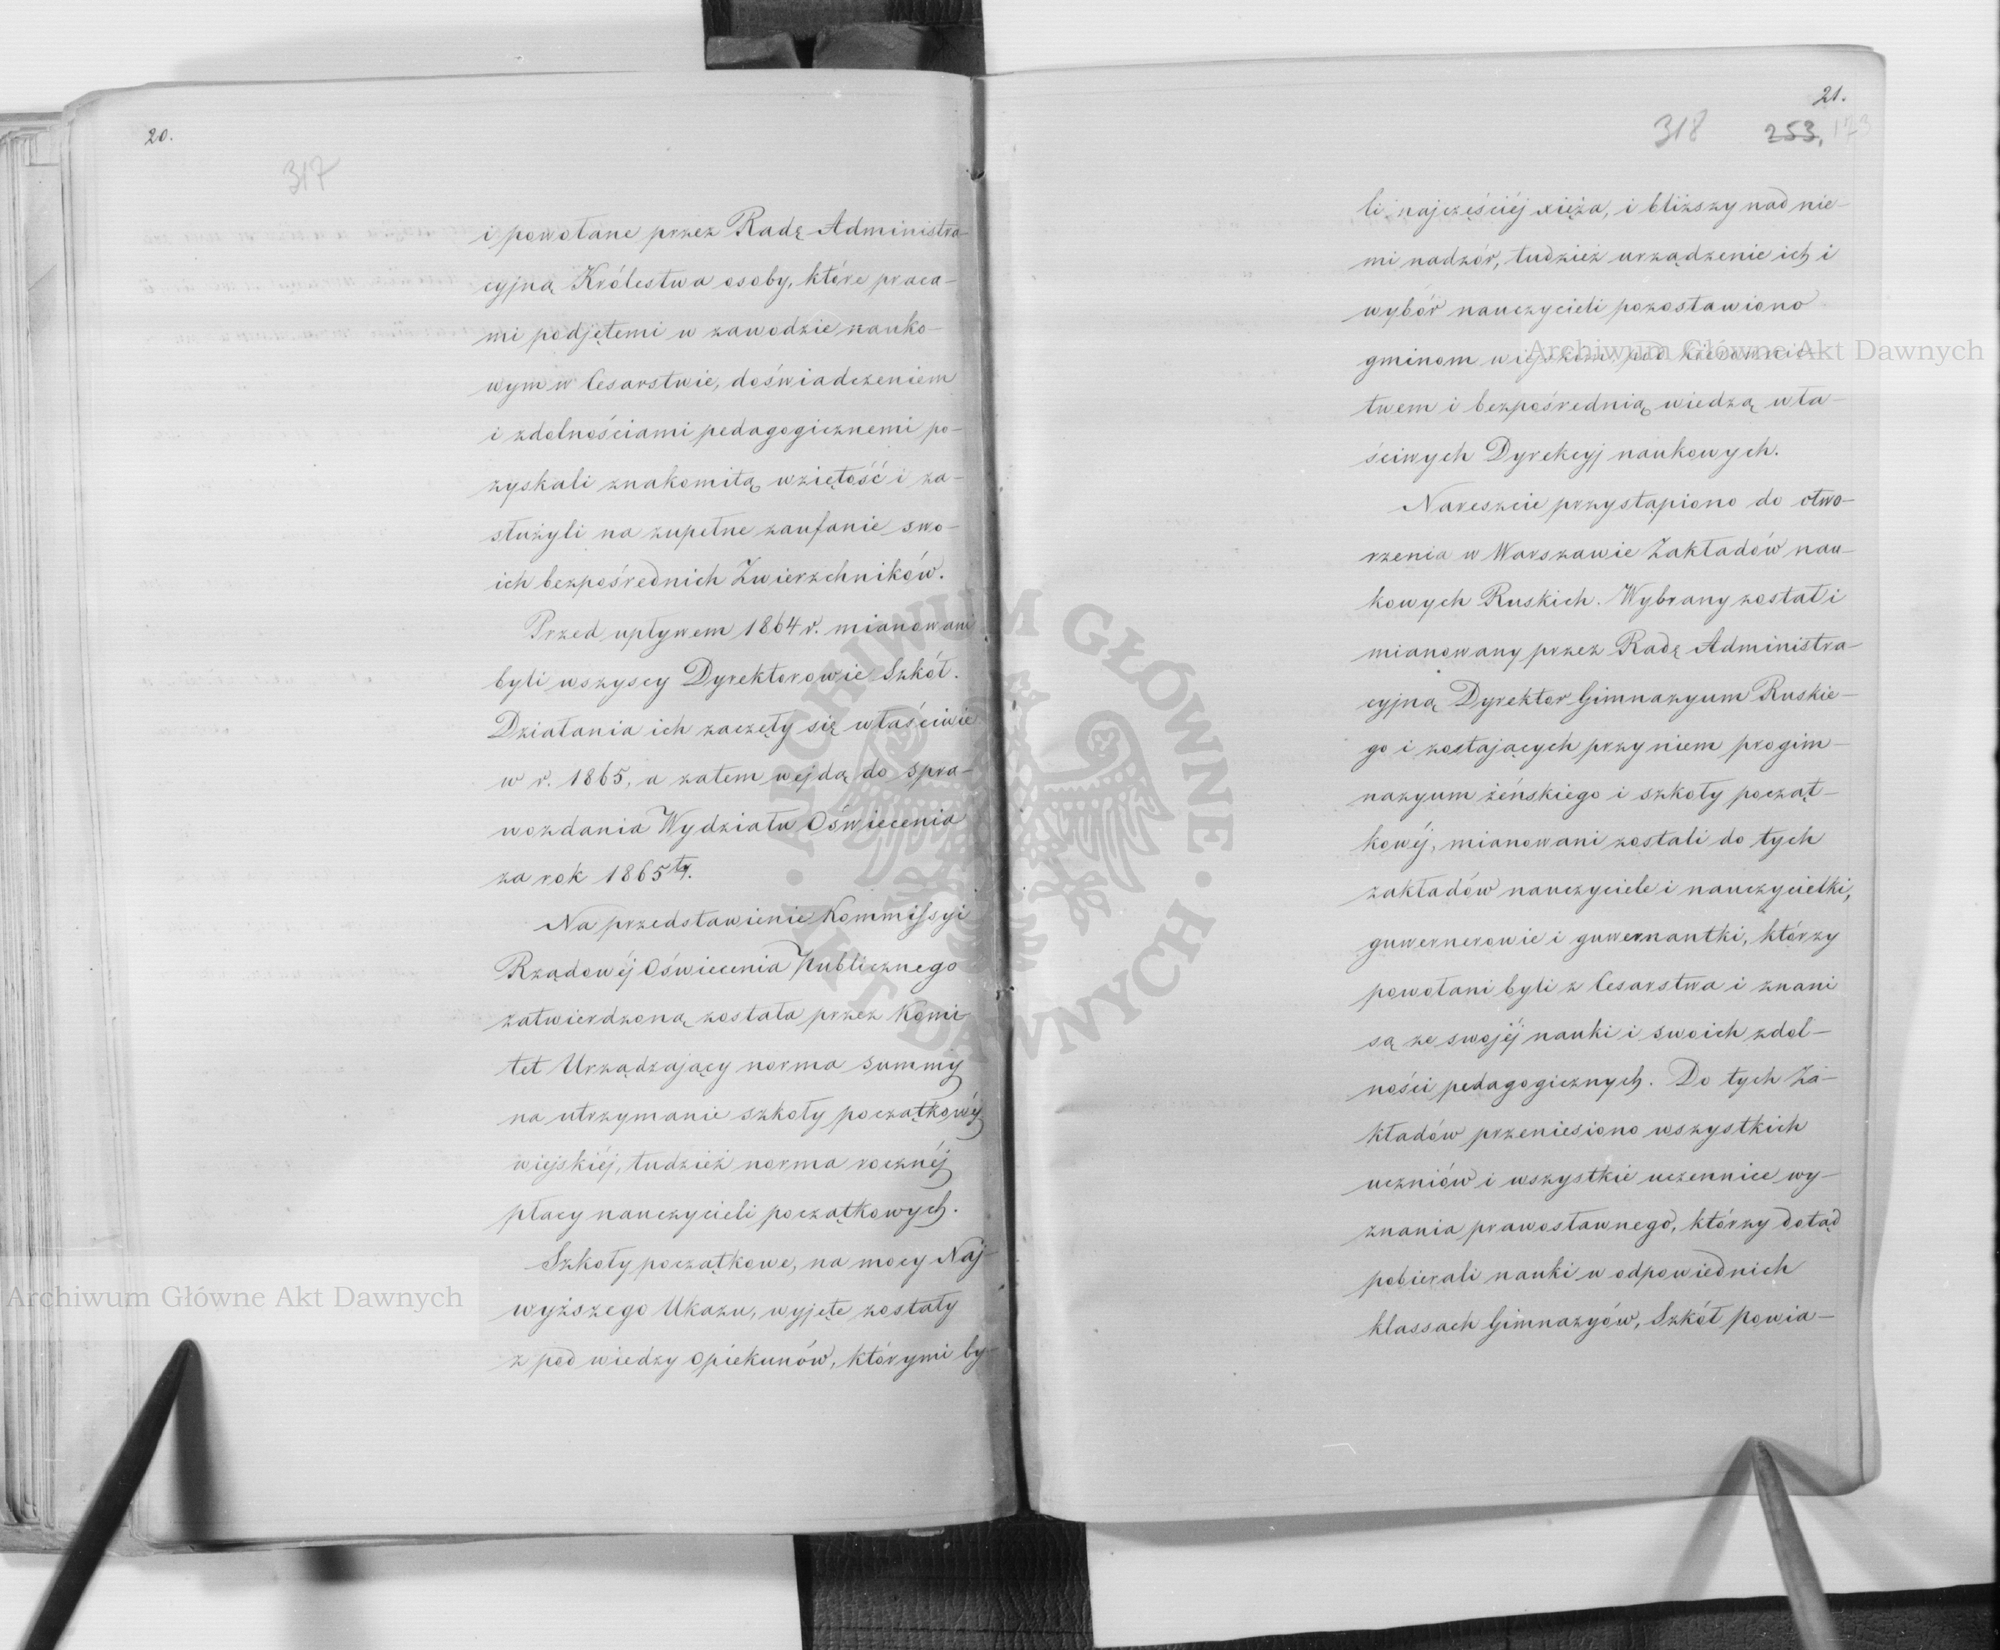 20.
317
i powołane przez Radę Administra-
cyjną Królestwa osoby, które praca-
mi podjętemi w zawodzie nauko-
wym w Cesarstwie, doświadczeniem
i zdolnościami pedagogicznemi po-
zyskali znakomitą wziętość i za-
służyli na zupełne zaufanie swo-
ich bezpośrednich Zwierzchników.
Przed upływem 1864 r. mianowani
byli wszyscy Dyrektorowie Szkół.
Działania ich zaczęły się właściwie
w r. 1865, a zatem wejdą do spra-
wozdania Wydziału Oświecenia
za rok 1865ty.
Na przedstawienie Kommissyi
Rządowéj Oświecenia Publicznego
zatwierdzoną została przez Komi-
tet Urządzający norma summy
na utrzymanie szkoły początkowéj
wiejskiéj, tudzież norma rocznéj
płacy nauczycieli początkowych.
Szkoły początkowe, na mocy Naj-
wyższego Ukazu, wyjęte zostały
z pod wiedzy opiekunów, którymi by-
21.
318 253, 173
li najczęściéj xięża, i bliższy nad nie-
mi nadzór, tudzież urządzenie ich i
wybór nauczycieli pozostawiono
gminom wiejskim, pod kierownic-
twem i bezpośrednią wiedzą wła-
ściwych Dyrekcyj naukowych.
Nareszcie przystąpiono do otwo-
rzenia w Warszawie Zakładów nau-
kowych Ruskich. Wybrany został i
mianowany przez Radę Administra-
cyjną Dyrektor Gimnazyum Ruskie-
go i zostających przy niem progim-
nazyum żeńskiego i szkoły począt-
kowéj, mianowani zostali do tych
zakładów nauczyciele i nauczycielki,
guwernerowie i guwernantki, którzy
powołani byli z Cesarstwa i znani
są ze swojéj nauki i swoich zdol-
ności pedagogicznych. Do tych Za-
kładów przeniesiono wszystkich
uczniów i wszystkie uczennice wy-
znania prawosławnego, którzy dotąd
pobierali nauki w odpowiednich
klassach Gimnazyów, Szkół powia-
Archiwum Główne Akt Dawnych
Archiwum Główne Akt Dawnych
ARCHIWUM GŁÓWNE AKT DAWNYCH